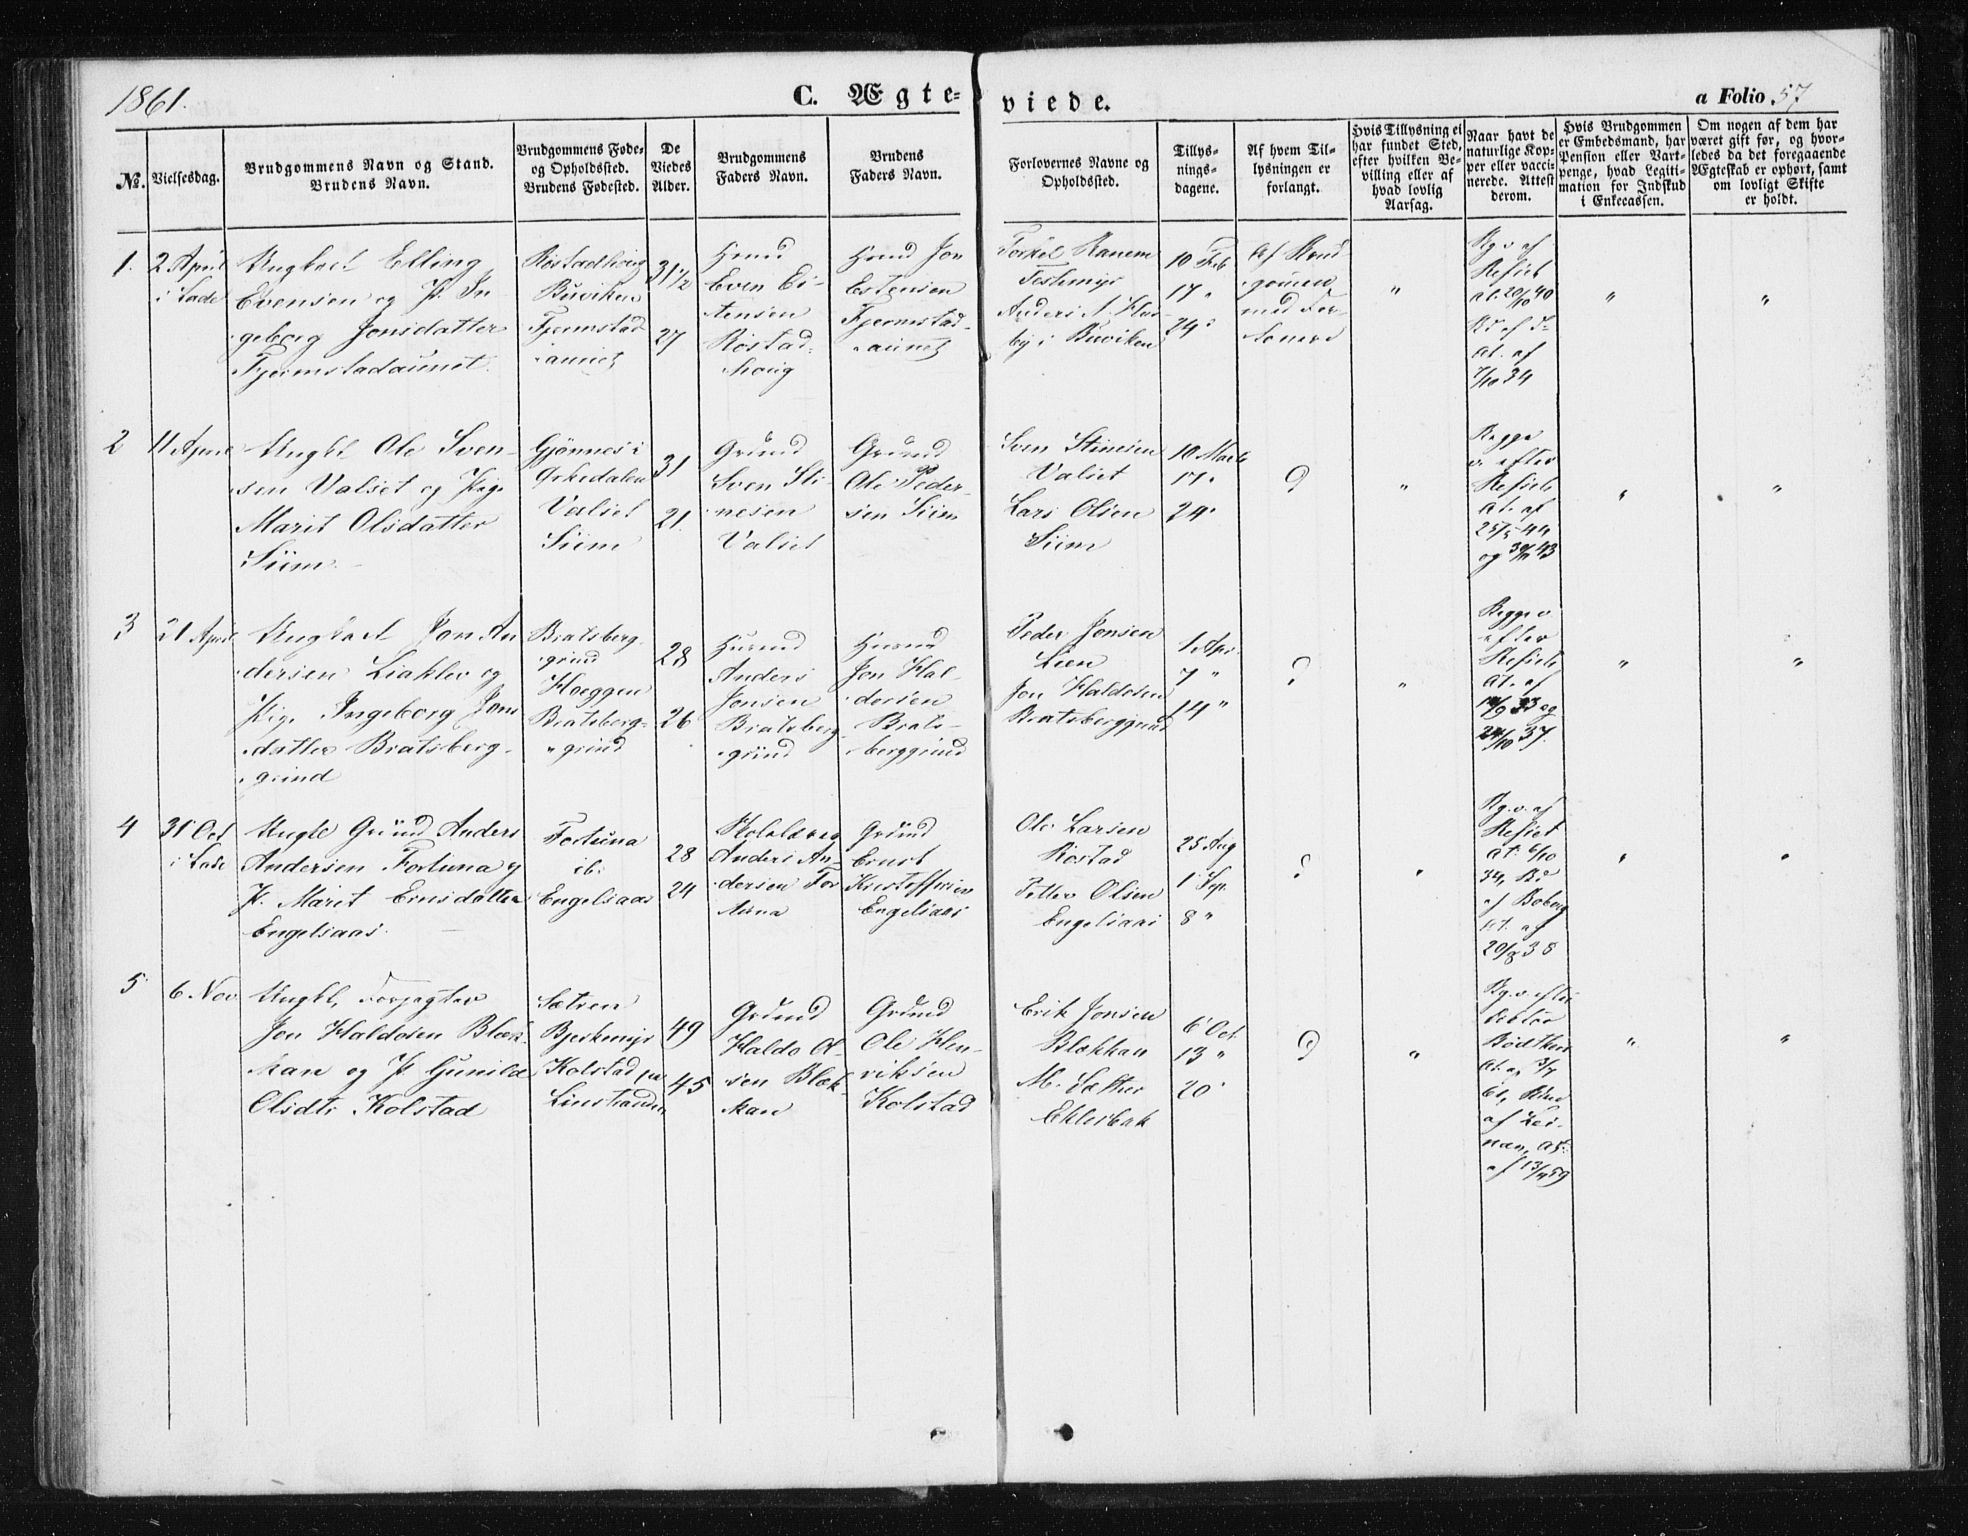 1861.
C. Ægte-
viede.
a Folio 57
No.
Vielsesdag.
Brudgommens Navn og Stand.
Brudens Navn.
Brudgommens Føde-
og Opholdssted.
Brudens Fødested.
De
Viedes
Alder.
Brudgommens
Faders Navn.
Brudens
Faders Navn.
Forlovernes Navne og
Opholdssted.
Tillys-
nings-
dagene.
Af hvem Til-
lysningen er
forlangt.
Hvis Tillysning ei
har fundet Sted,
efter hvilken Be-
villing eller af
hvad lovlig
Aarsag.
Naar havt de
naturlige Kop-
per eller vacci-
nerede. Attest
derom.
Hvis Brudgommen
er Embedsmand, har
Pension eller Vart-
penge, hvad Legiti-
mation for Indskud
i Enkecassen.
Om nogen af dem har
været gift før, og hvor-
ledes da det foregaaende
Ægteskab er ophørt, samt
om lovligt Skifte
er holdt.
1.
2 April
i Lade
Ungkarl Elling
Evensen og P. In
geborg Jonsdatter
Fjermstadaunet.
Rostadhoug
Buviken
Fjermstad
aunet
31½
27
Even Ei-
tensen
Rostad-
houg
Jon
Estensen
Fjermstad-
aunet
Torkel Ranem
Testmyr
Anders A. Hus-
by i Buviken
10 Feb
17 "
24 "
Af Brud
gomen
med For-
lovere
"
Bg. v. af
Refset
At. 20/10 40
Bd af d=
At. af
7/10 34
"
"
2
11 April
Ungkl Ole Sven-
sen Valset og Pige
Marit Olsdatter
Siim.
Gjønnes i
Orkedalen
Valset
Siim
31
21.
Grund
Sven Sti-
nesen
Valset
Grund
Ole Peder-
sen Siim
Sven Stinesen
Valset
Lars Olsen
Siim
10 Marts
17 "
24 "
"
Begge
v. efter
Refsets
At. af
25/5 44
og 30/11 43
"
"
3
21 April
Ungkarl Jon An
dersen Liaklev og
Pige Ingeborg Jons
datter Bratsberg-
grind
Bratsberg-
grind
Hoeggen
Bratsberg-
grind
28
26
Husmd
Anders
Jonsen
Bratsberg-
grind
Husmd
Jon Hal-
dorsen
Brats-
berggrind
Peder Jonsen
Lien
Jon Haldosen
Bratsberggrind
1 Apr.
7 "
14 "
"
Begge v
efter
Refsets
At. af
33 og
24/10 37.
"
"
4
31 Oct
i Lade
Ungkl Grund Anders
Andersen Fortuna og
P. Marit Ernsdatter
Engelsaas.
Fortuna
ib.
Engelsaas
28
24
Anders An-
dersen For
tuna
Grund
Ernst
Kristoffersen
Engelsaas
Ole Larsen
Rostad
Petter Olsen
Engelsaas
25 Aug
1 Sept
8 "
"
Bg. v. af
Refset
At. 6/10
34, Bd
af Boberg
At. af
20/8 38
"
"
5
6 Nov
Ungkl, Forpagter
Jon Haldosen Blæk-
kan og P. Gunild
Olsdtr Kolstad
Sætren
Bjerkemyr
Kolstad pa
Linstranden
49
45
Grund
Haldo Ol-
sen Blæk-
kan
Grund
Ole Hen-
riksen
Kolstad
Erik Jonsen
Blækkan
M. Sæther
Eklesbak
6 Oct.
13 "
20 "
"
Bg. v. efter
At. af 3/7
61,
af Lei-
nan, At.
af 13/11 59
"
"